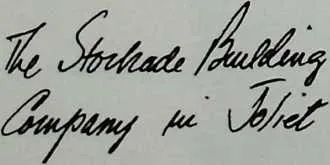 The Stockade Building
Company in Joliet